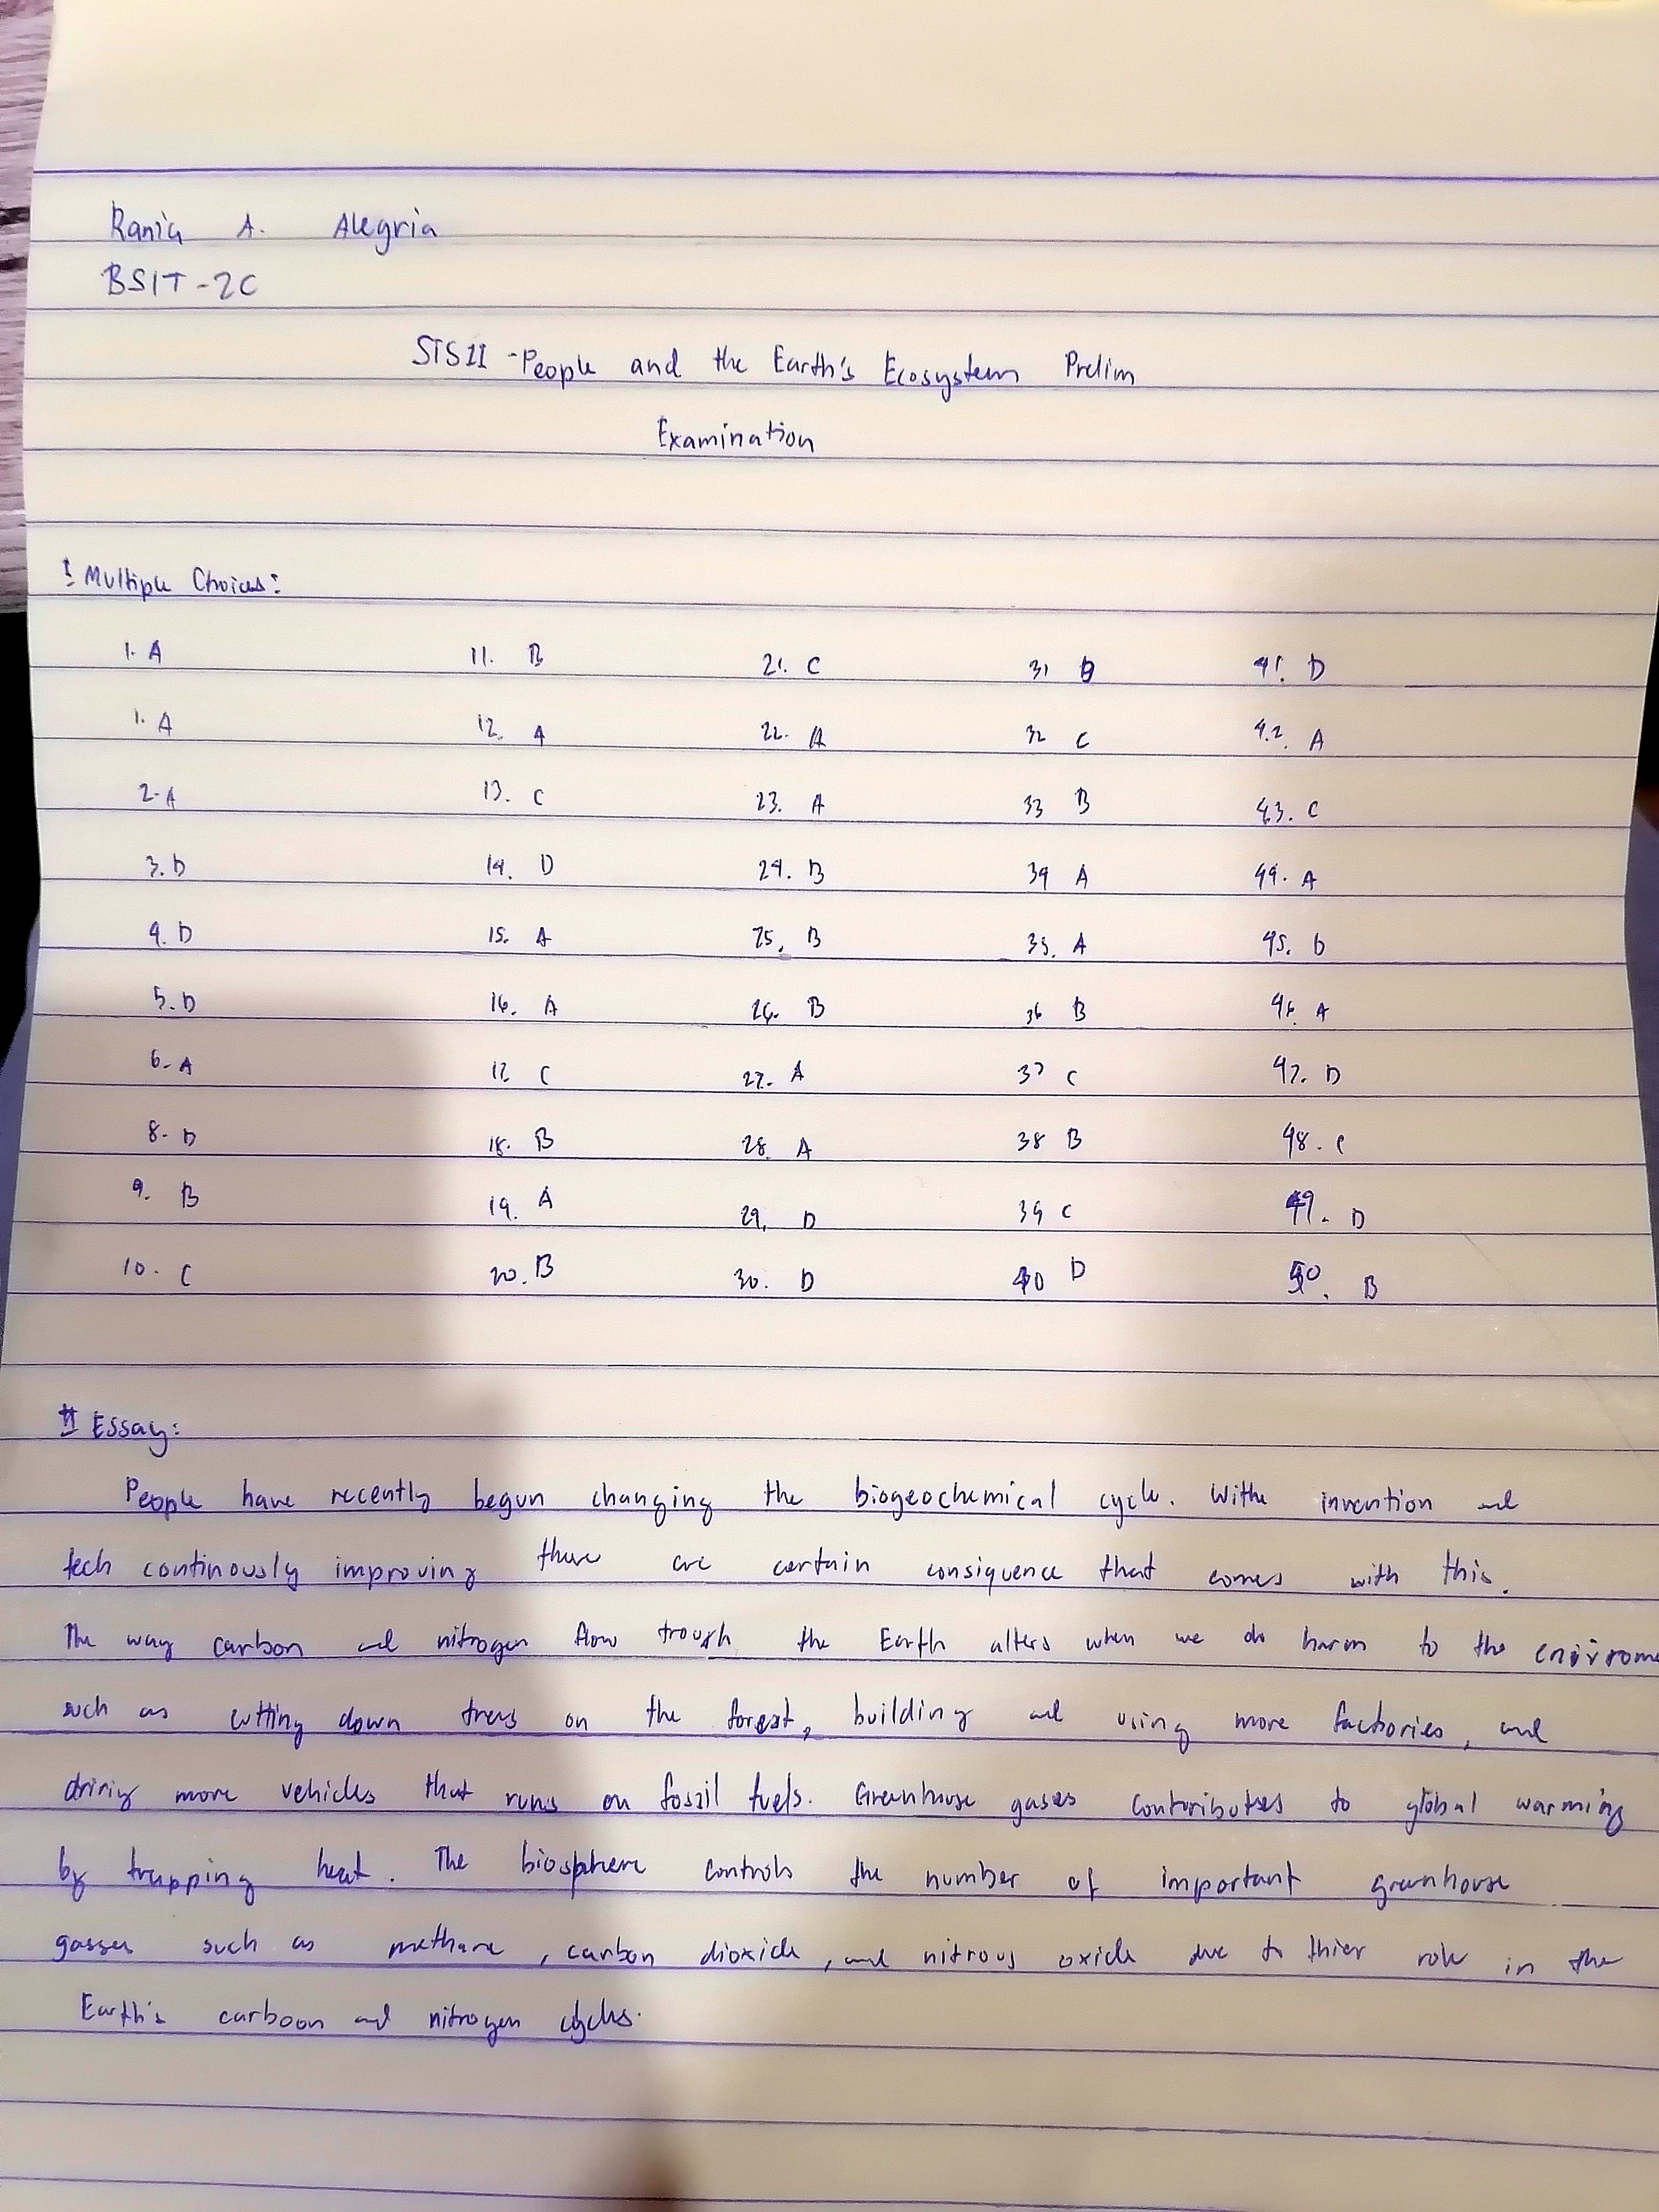 Rania A. Alegria
BSIT-2C
STS11 -People and the Earth's Ecosystem Prelim
Examination
I Multiple Choices:
1. A 11. B 21. C 31 B 41. D
1. A 12. A 22. A 32 C 42. A
2. A 13. C 23. A 33 B 43. C
3. D 14. D 24. B 34 A 44. A
4. D 15. A 25. B 35. A 45. D
5. D 16. A 26. B 36 B 46. A
6. A 17. C 27. A 37 C 47. D
8. D 18. B 28. A 38 B 48. C
9. B 19. A 29. D 39 C 49. D
10. C 20. B 30. D 40 D 50. B
II Essay:
People have recently begun changing the biogeochemical cycle. Withe invention and
tech continously improving there are certain consiquence that comes with this.
The way carbon and nitrogen flow trough the Earth alters when we do harm to the
such as cutting down trees on the forest, building and using more factories, and
driving more vehicles that runs on fossil fuels. Greenhouse gases contributes to global warming
by trapping heat. The biosphere controls the number of important greenhouse
gasses such as methane, carbon dioxide, and nitrous oxide due to thier role in the
Earth's carboon and nitrogen cycles.